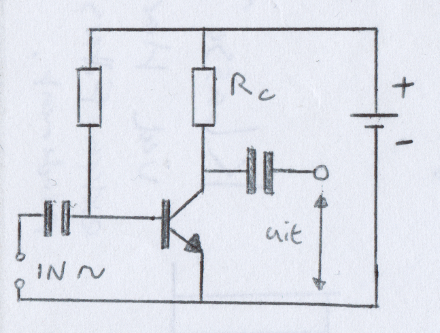 +
Rc
-
uit
IN ~